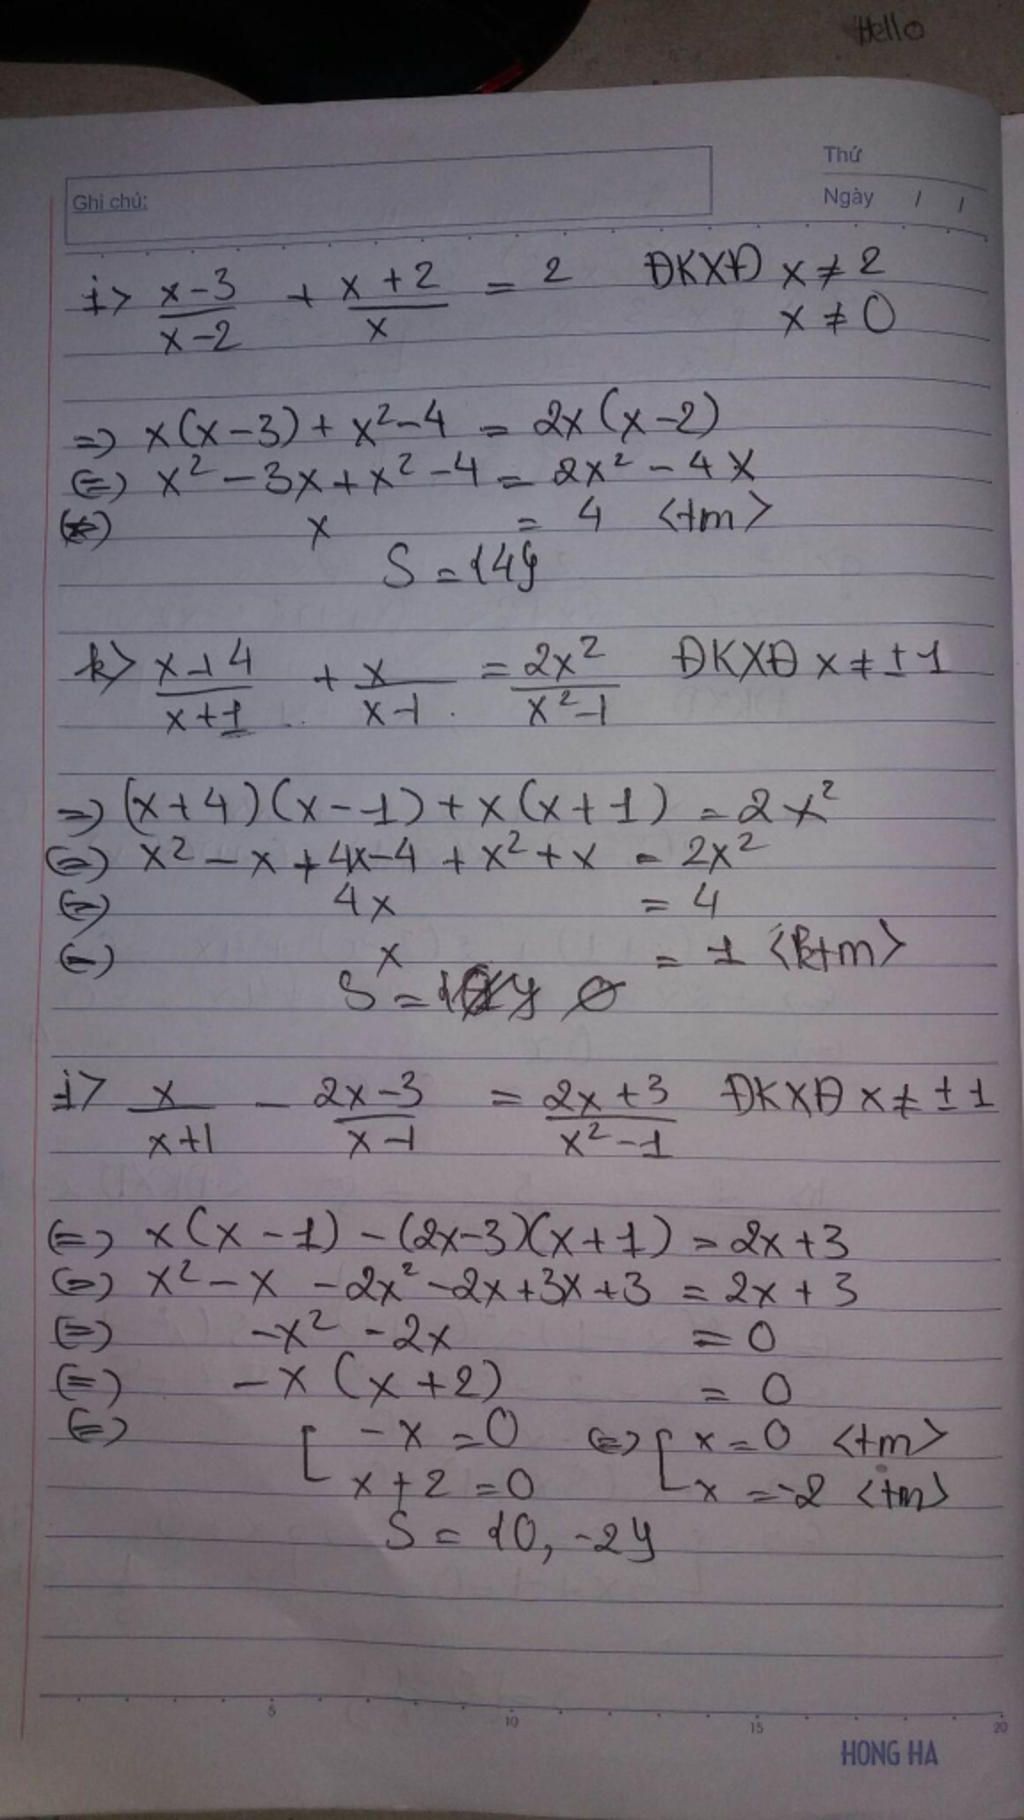 Hello
Thứ
Ghi chú:
Ngày / /
i> (x-3)/(x-2) + (x+2)/x = 2 ĐKXĐ x ≠ 2
x ≠ 0
=> x(x-3) + x² - 4 = 2x(x-2)
<=> x² - 3x + x² - 4 = 2x² - 4x
<=> x = 4 <tm>
S = {4}
k> (x+4)/(x+1) + x/(x-1) = 2x²/(x²-1) ĐKXĐ x ≠ ±1
=> (x+4)(x-1) + x(x+1) = 2x²
<=> x² - x + 4x - 4 + x² + x = 2x²
<=> 4x = 4
<=> x = 1 <ktm>
S = ∅
i> x/(x+1) - (2x-3)/(x-1) = (2x+3)/(x²-1) ĐKXĐ x ≠ ±1
<=> x(x-1) - (2x-3)(x+1) = 2x+3
<=> x² - x - 2x² - 2x + 3x + 3 = 2x + 3
<=> -x² - 2x = 0
<=> -x(x+2) = 0
<=> [ -x = 0 <=> [ x = 0 <tm>
x + 2 = 0 x = -2 <tm>
S = {0, -2}
5 10 15 20
HONG HA